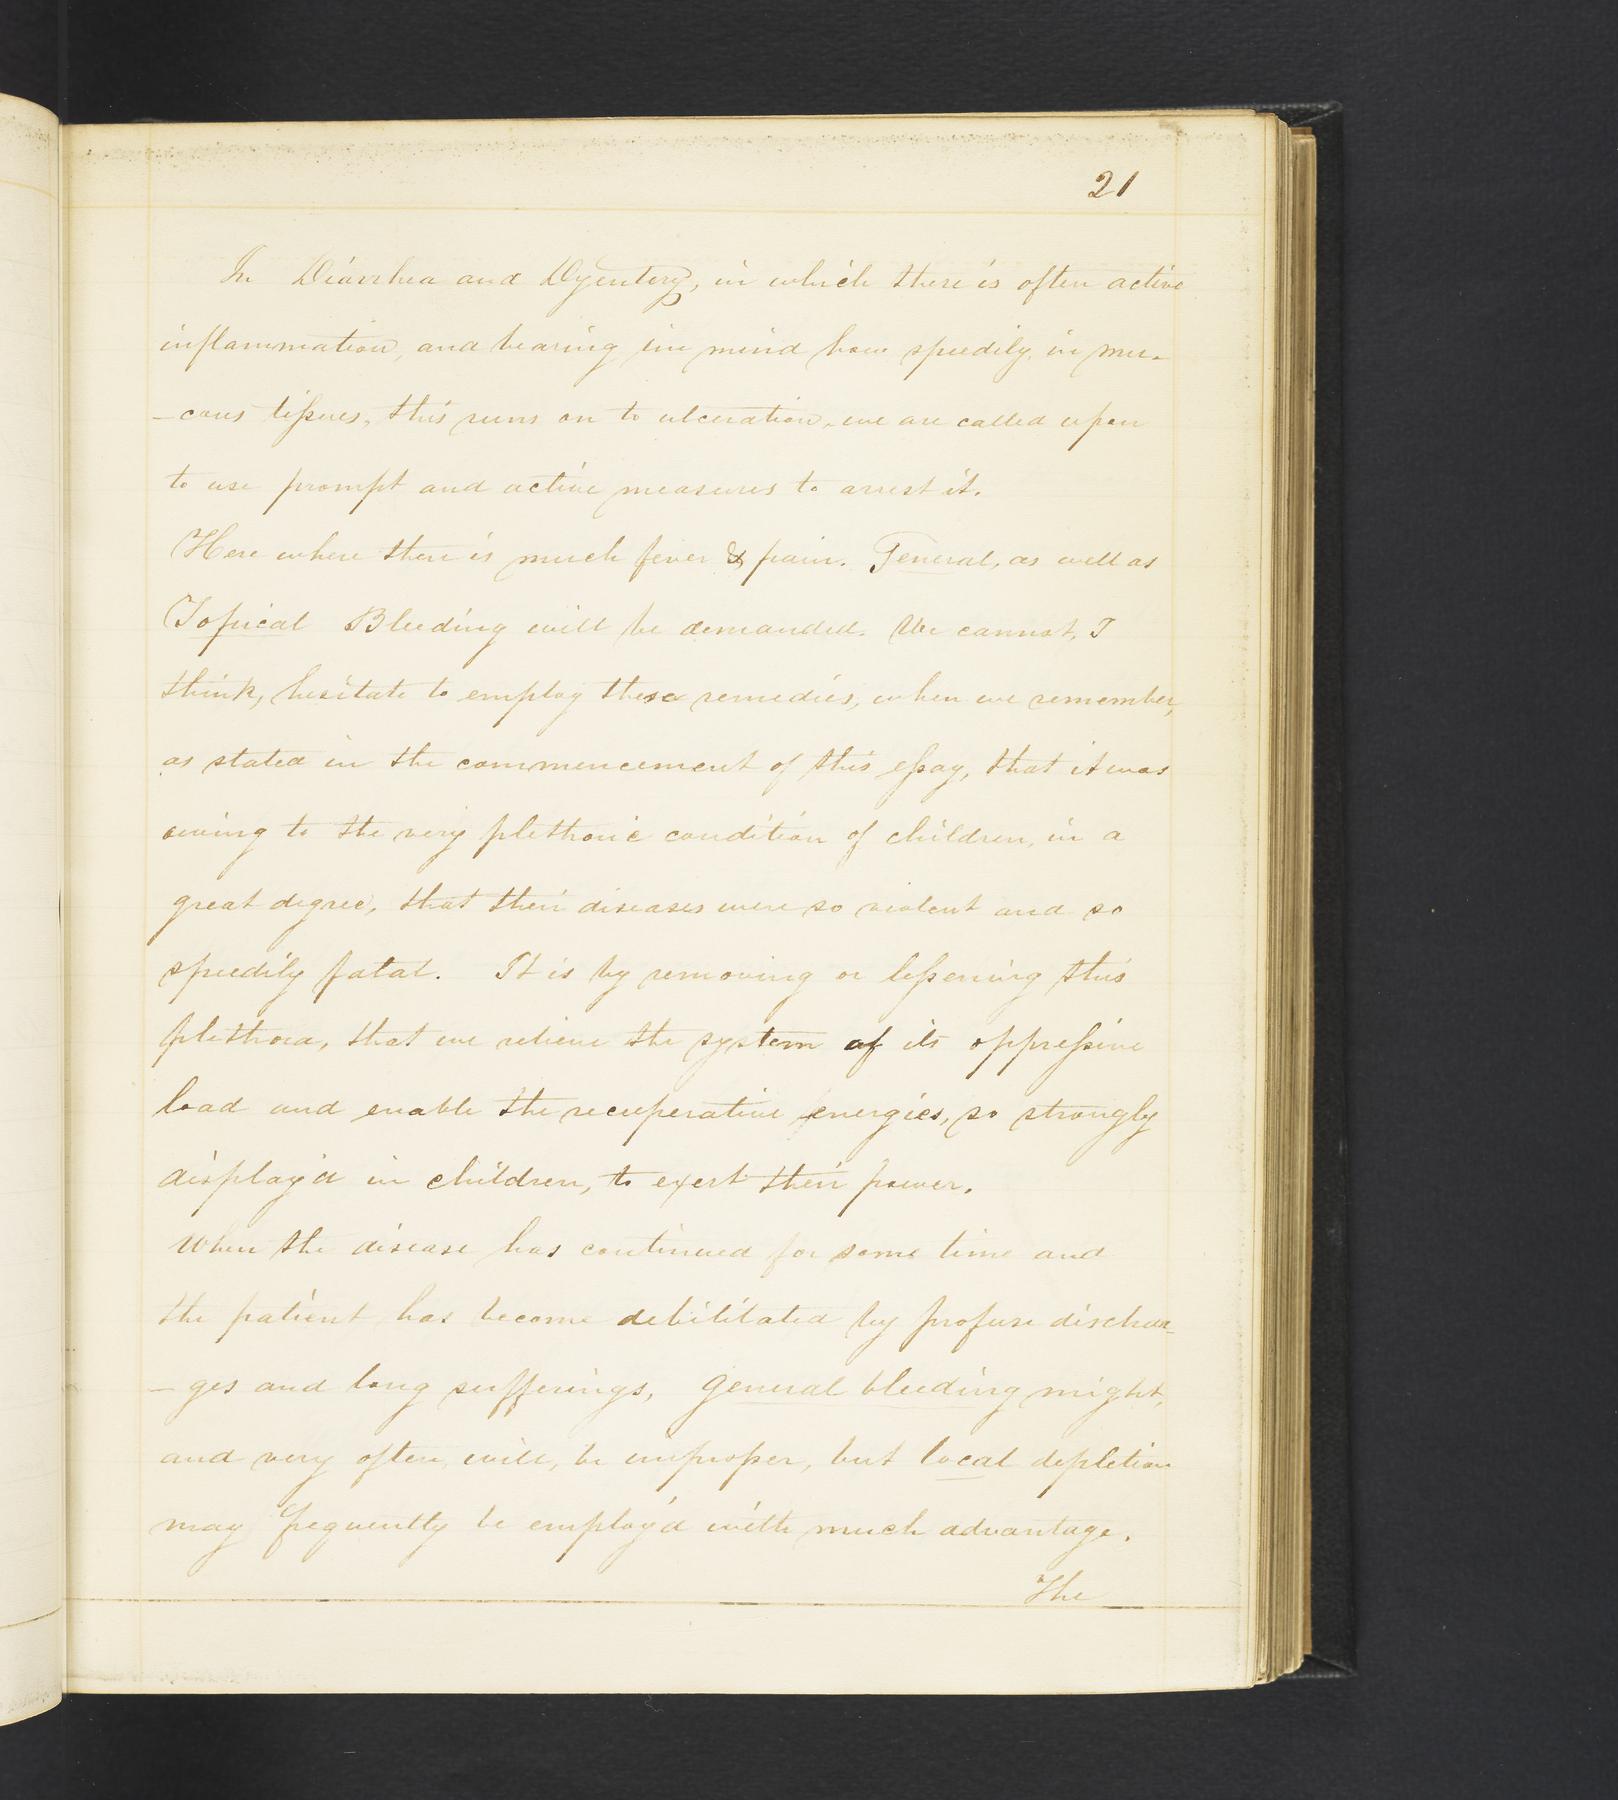 21
In Diarrhea and Dyentery, in which there is often active
inflammation, and bearing in mind how speedily, in mu-
-cous tissues, this runs on to ulceration, we are called upon
to use prompt and active measures to arrest it.
Here where there is much fever & pain. General, as well as
Topical Bleeding will be demanded. We cannot, I
think, hesitate to employ these remedies, when we remember,
as stated in the commencement of this essay, that it was
owing to the very plethoric condition of children, in a
great degree, that their diseases were so violent and so
speedily fatal. It is by removing or lessening this
plethora, that we relieve the system of its oppressive
load and enable the recuperative energies, so strongly
display'd in children, to exert their power.
When the disease has continued for some time and
the patient has become debilitated by profuse dischar-
-ges and long sufferings, general bleeding might,
and very often, will, be improper, but local depletion
may frequently be employ'd with much advantage.
The